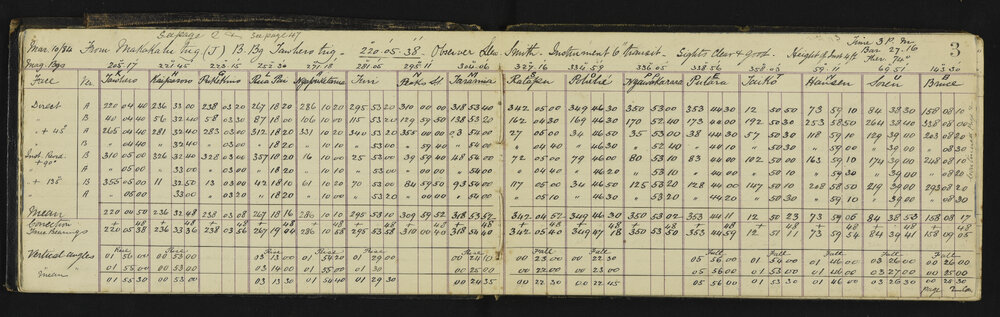 See page 2 & see page 47
Mar 10/84 From Makakaho trig (J) B. Bg Tawhero trig - 220.05.38. Observer Llew. Smith. Instrument 6" transit. Sights Clear & good. Height of Inst 4ft
Time 3 P.M
Bar 27.16
Ther 74°
3
Mag. Bgs 205.17 221.45 223.15 252.30 271.15 281.05 295.11 304.06 327.16 334.59 336.05 338.56 358.05 59.11 69.51 143.30
Face Ver. Tawhero Kaiparoro Pukekino Rua Pae Furi Taranaki Ratapea Puhihi Ngawakarara Pukara Taiko Hansen Loren Bruce
Direct A 220 04 40 236 33 00 238 03 20 267 18 20 286 10 20 295 53 20 310 00 00 318 53 40 342 05 00 349 46 30 350 53 00 353 44 30 12 50 50 73 59 10 84 38 30 158 08 10
B 40 04 40 56 32 40 58 03 30 87 18 00 106 10 00 115 53 20 129 59 50 138 53 20 162 04 30 169 46 30 170 52 40 173 44 00 192 50 30 253 58 50 264 38 40 338 08 00
" + 45° A 265 04 40 281 32 40 283 03 00 312 18 20 331 10 20 340 53 20 355 00 00 03 54 00 27 05 00 34 46 50 35 53 00 38 44 30 57 50 30 118 59 10 129 39 00 203 08 20
B " 04 40 " 32 40 " 03 00 " 18 20 " 10 10 " 53 00 " 59 40 " 54 00 " 04 40 " 46 30 " 52 40 " 44 10 " 50 30 " 59 00 " 39 00 " 08 20
Inst. Revd. + 90° B 310 05 00 326 32 40 328 03 00 357 10 20 16 10 00 25 53 00 39 59 40 48 54 00 72 05 00 79 46 00 80 53 10 83 44 00 102 50 00 163 59 10 174 39 00 248 08 10
A " 05 00 " 33 00 " 03 00 " 18 20 " 10 00 " 53 00 " 59 40 " 54 00 " 04 40 " 46 20 " 53 10 " 44 00 " 50 10 " 59 30 " 39 00 " 08 20
" + 135° B 355 05 00 11 32 50 13 03 00 42 18 10 61 10 20 70 53 00 84 59 50 93 54 00 117 05 00 34 46 50 125 53 20 128 44 00 147 50 10 208 58 50 219 39 00 293 08 20
A " 05 00 " 33 00 " 03 20 " 18 20 " 10 10 " 53 00 " 54 00 " 05 10 " 46 30 " 53 20 " 44 20 " 50 30 " 59 10 " 39 00 " 08 30
Mean 220 04 50 236 32 48 238 03 08 267 18 16 286 10 10 295 53 10 309 59 52 318 53 52 342 04 52 349 46 30 350 53 02 353 44 11 12 50 23 73 59 06 84 38 53 158 08 17
Correction + 48 + 48 + 48 + 48 + 48 + 48 + 48 + 48 + 48 + 48 + 48 + 48 + 48 + 48
True Bearings 220 05 38 236 33 36 238 03 56 267 19 04 286 10 58 295 53 58 310 00 40 318 54 40 342 05 40 349 47 18 350 53 50 353 44 59 12 51 11 73 59 54 84 39 41 158 09 05
Rise Rise Rise Rise Rise Fall Fall Fall Fall
Vertical angles 01 56 00 00 53 00 03 13 00 01 54 20 01 29 00 00 24 10 00 23 00 00 22 30 05 56 00 01 54 00 01 46 00 03 26 00 00 26 00
" 01 55 00 00 53 00 03 14 00 01 55 00 01 30 00 25 00 00 22 00 00 23 00 05 56 00 01 53 00 01 46 00 03 27 00 00 25 00
mean 01 55 30 00 53 00 03 13 30 01 54 40 01 29 30 00 24 35 00 22 30 00 22 45 05 56 00 01 53 30 01 46 00 03 26 30 00 25 30
page